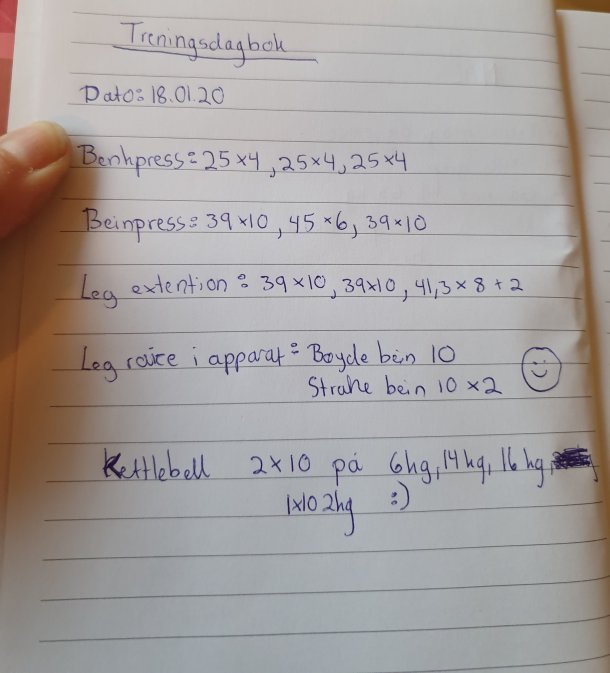 Treningsdagbok
Dato: 18.01.20
Benkpress: 25x4, 25x4, 25x4
Beinpress: 39x10, 45x6, 39x10
Leg extention: 39x10, 39x10, 41,3x8+2
Leg raice i apparat: Boyde bein 10
Strake bein 10x2
Kettlebell 2x10 på 6kg, 14kg, 16kg,
1x10 2kg :)